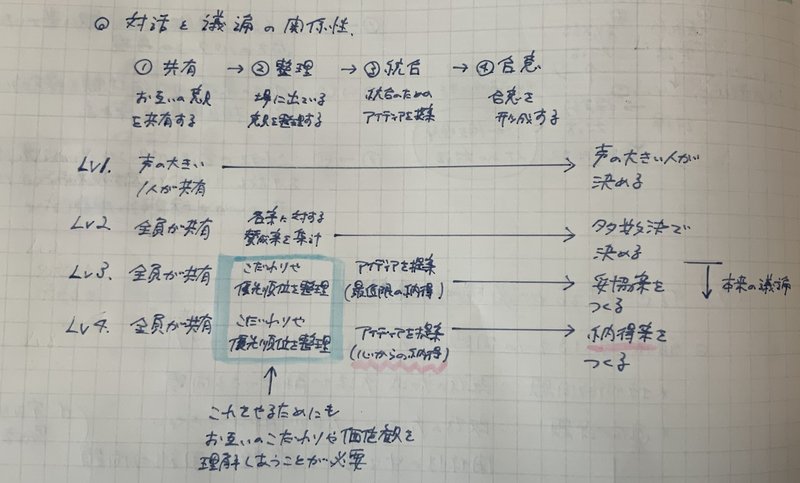 ◎ 対話と議論の関係性.
① 共有 → ② 整理 → ③ 統合 → ④ 合意
お互いの意見 場に出ている 統合のための 合意を
を共有する 意見を整理する アイディアを提案 形成する
Lv1. 声の大きい → 声の大きい人が
1人が共有 決める
Lv2. 全員が共有 各案に対する → 多数決で
賛成票を集計 決める
Lv3. 全員が共有 こだわりや アイディアを提案 → 妥協案を ↓ 本来の議論
優先順位を整理 (最低限の納得) つくる
Lv4. 全員が共有 こだわりや アイディアを提案 → 納得案を
優先順位を整理 (心からの納得) つくる
↑
これをやるためにも
お互いのこだわりや価値観を
理解しあうことが必要